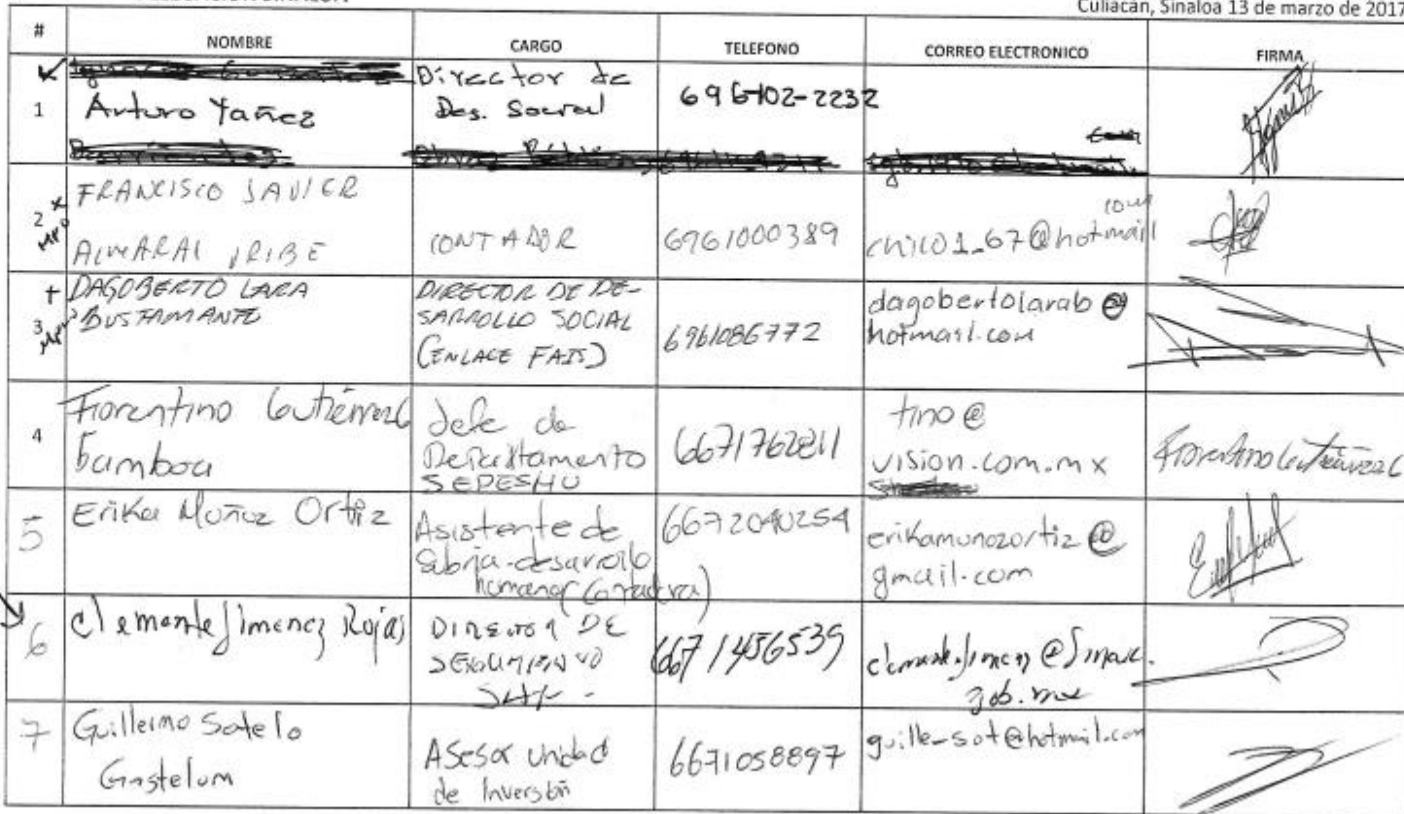 Culiacán, Sinaloa 13 de marzo de 2017
# NOMBRE CARGO TELEFONO CORREO ELECTRONICO FIRMA
1 Arturo Yañez Director de
Des. Social 696-102-2232
2 FRANCISCO JAVIER
CONTADOR 6961000389 chico1_67@hotmail
com
3 DAGOBERTO LARA
BUSTAMANTE DIRECTOR DE DE-
SARROLLO SOCIAL
(ENLACE FAIS) 6961086772 dagobertolarab@
hotmail.com
4 Florentino Gutiérrez
Gamboa Jefe de
Departamento
SEDESHU 6671762811 tino@
vision.com.mx Florentino Gutiérrez G
5 Erika Muñoz Ortiz Asistente de
humano (Contadora) 6672040254 erikamunozortiz@
gmail.com
6 Clemente Jimenez Rojas DIRECTOR DE
667 1456539
gob.mx
7 Guillermo Sotelo
Gastelum Asesor Unidad
de Inversión 6671058897 guille_sot@hotmail.com